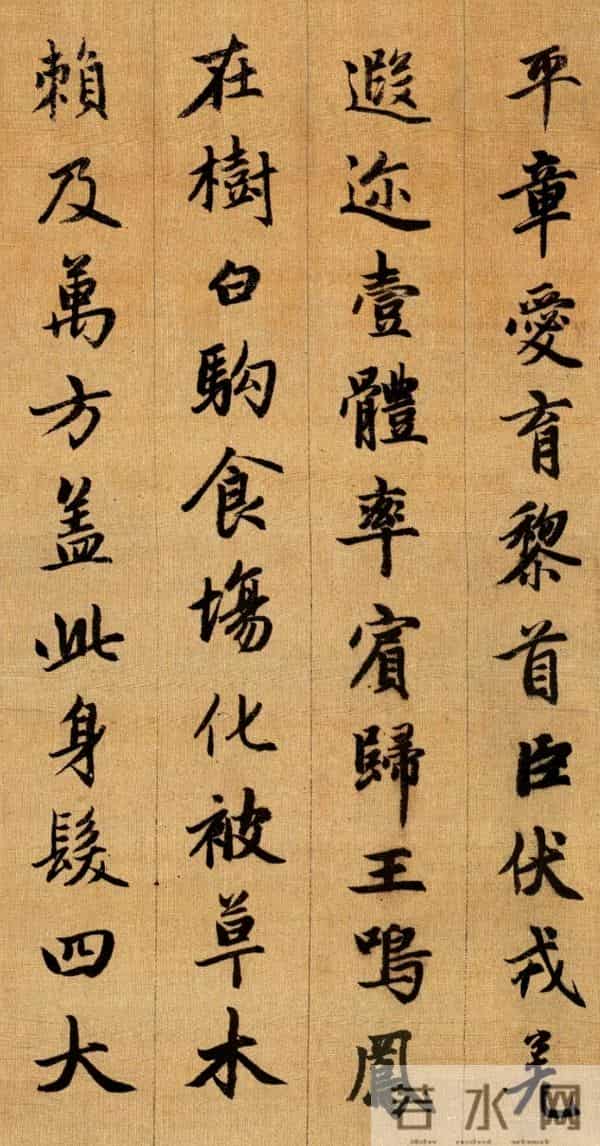 平章愛育黎首臣伏戎羌
遐迩壹體率賓歸王鳴鳳
在樹白駒食塲化被草木
賴及萬方盖此身髮四大
若水网